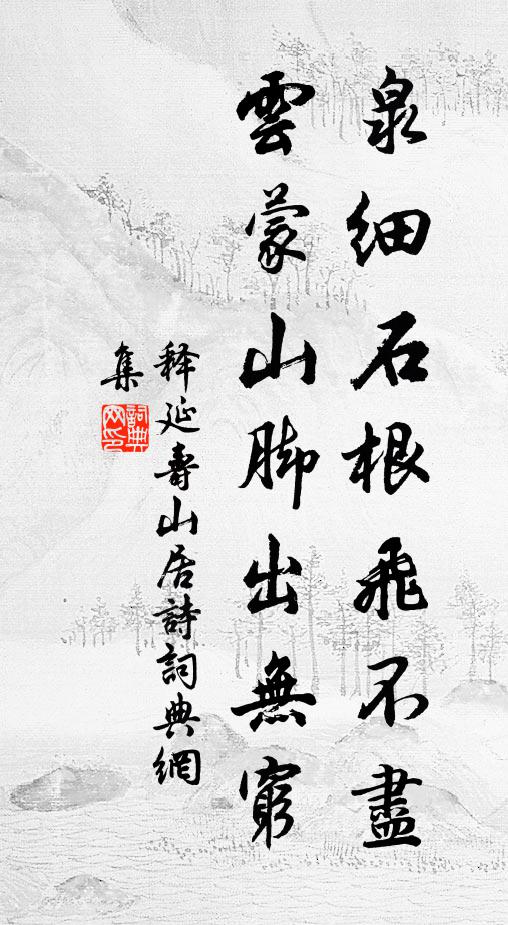 泉細石根飛不盡
雲蒙山脚出無窮
释延壽山居詩詞典網
集
詞典
网印